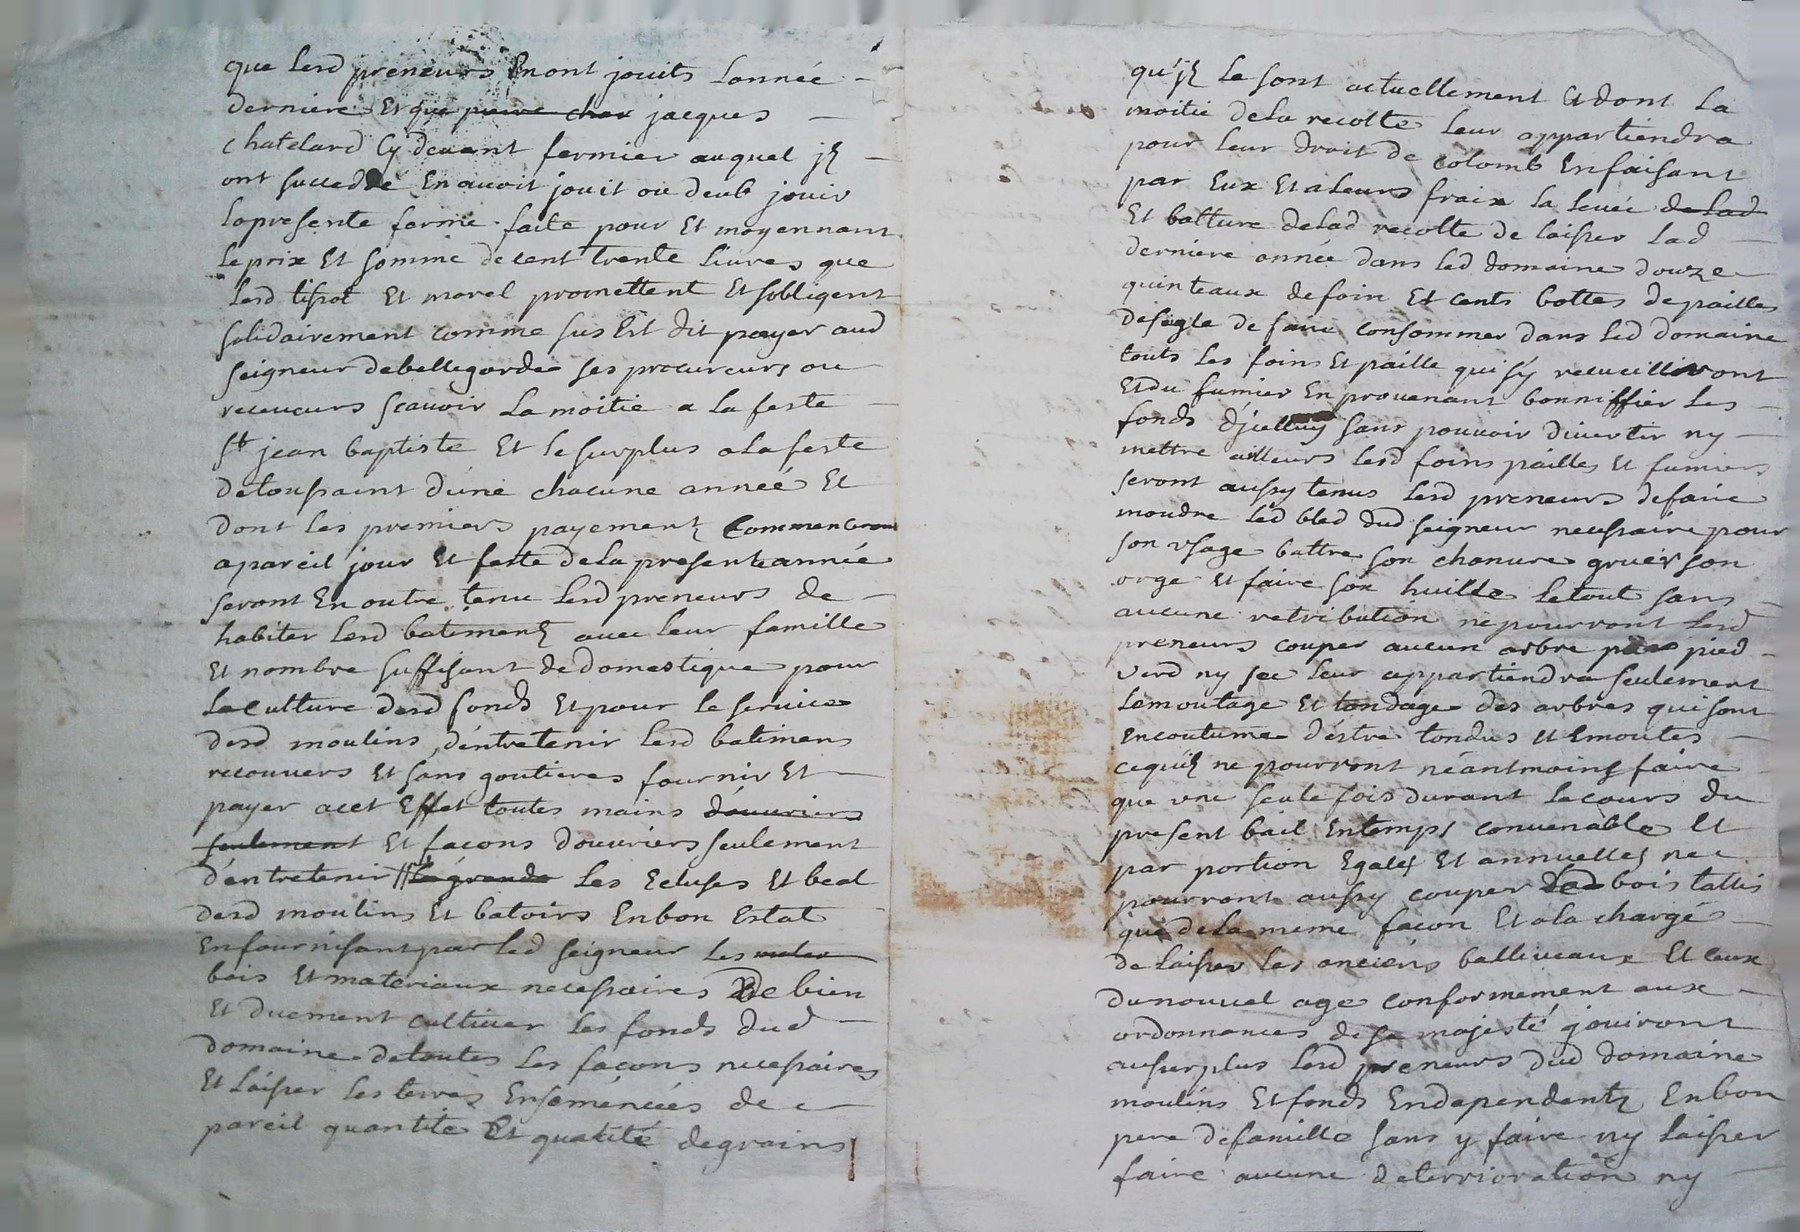 que lesd preneurs En ont jouits lannée
derniere Et que pierre chax jacques
chatelard Cy devant fermier auquel jls
ont succeddé En avoit jouit ou deub jouir
lapresente ferme faite pour Et moyennant
le prix Et somme de cent trente livres que
lesd tissot Et morel promettent Et sobligent
solidairement comme sus Est dit payer aud
seigneur debellegarde ses procureurs ou
receveurs scavoir La moitie a La feste
st jean baptiste Et le surplus a La feste
detoussaint dúne chacune année Et
dont Les premiers payements Commenceront
apareil jour Et feste de La presente année
seront En outre tenu Lesd preneurs de
habiter Lesd batiments avec leur famille
Et nombre suffisant de domestique pour
La culture desd fonds Et pour le service
desd moulins, déntretenir Lesd batimens
recouvers Et sans goutieres fournir Et
payer acet Effet toutes mains dóuvriers
seulement Et facons douvriers seulement
déntretenir les Ecluses Et beal
desd moulins Et batoirs En bon Estat
En fournissant par led seigneur Les
bois Et materiaux necessaires De bien
Et duement cultiver Les fonds dud
domaine de toutes Les facons necessaires
Et Laisser Les terres Ensémencées de
pareil quantite Et qualité degrains
qu'jls Le sont actuellement Et dont La
moitie de La recolte Leur appartiendra
pour Leur droit de colomb En faisant
par Eux Et a Leurs fraix La Levée de Lad
Et batture deLad recolte de Laisser Lad
derniere année dans Led domaine douze
quinteaux defoin Et cents bottes depailles
desegle de faire consommer dans Led domaine
touts Les foins Et paille qui sÿ recueilliront
Et du fumier En provenant bonniffier Les
fonds djcelluy sans pouvoir divertir ny
mettre ailleurs Lesd foins pailles Et fumiers
seront aussy tenus Lesd preneurs defaire
moudre Led bled dud seigneur necessaire pour
son usage battre son chanvre gruér son
orge Et faire son huille Le tout sans
aucune retribution ne pourront Lesd
preneurs couper aucun arbre par pied
verd ny sec Leur appartiendra seulement
Lemoutage Et tondage des arbres qui sont
En coutume déstre tondus Et Emoutes
ce quils ne pourront néantmoins faire
que une seule fois durant Le cours du
present bail En temps convenable Et
par portion Egales Et annuelles ne
pourront aussy couper bois tallis
que de La meme facon Et a La chargé
de Laisser Les anciéns balliveaux Et ceux
du nouvel age conformement aux
ordonnances de sa majesté jouiront
au surplus Lesd preneurs dud domaine
moulins Et fonds En dependents En bon
pere defamille sans y faire ny Laisser
faire aucune deterrioration ny